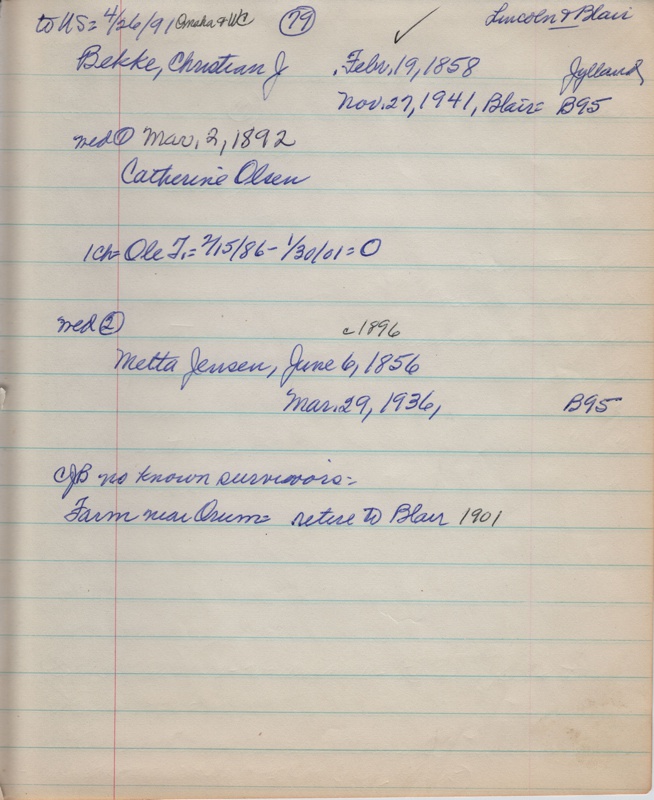 to US = 4/26/91 Omaha & WC (79) ✓ Lincoln & Blair
Bekke, Christian J Febr. 19, 1858 Jylland,
Nov. 27, 1941, Blair = B95
wed ① Mar. 2, 1892
Catherine Olsen
1 ch = Ole T. = 2/15/86 - 1/30/01 = 0
wed ② c 1896
Metta Jensen, June 6, 1856
Mar. 29, 1936, B95
CJB no known survivors =
Farm near Orum = retire to Blair 1901